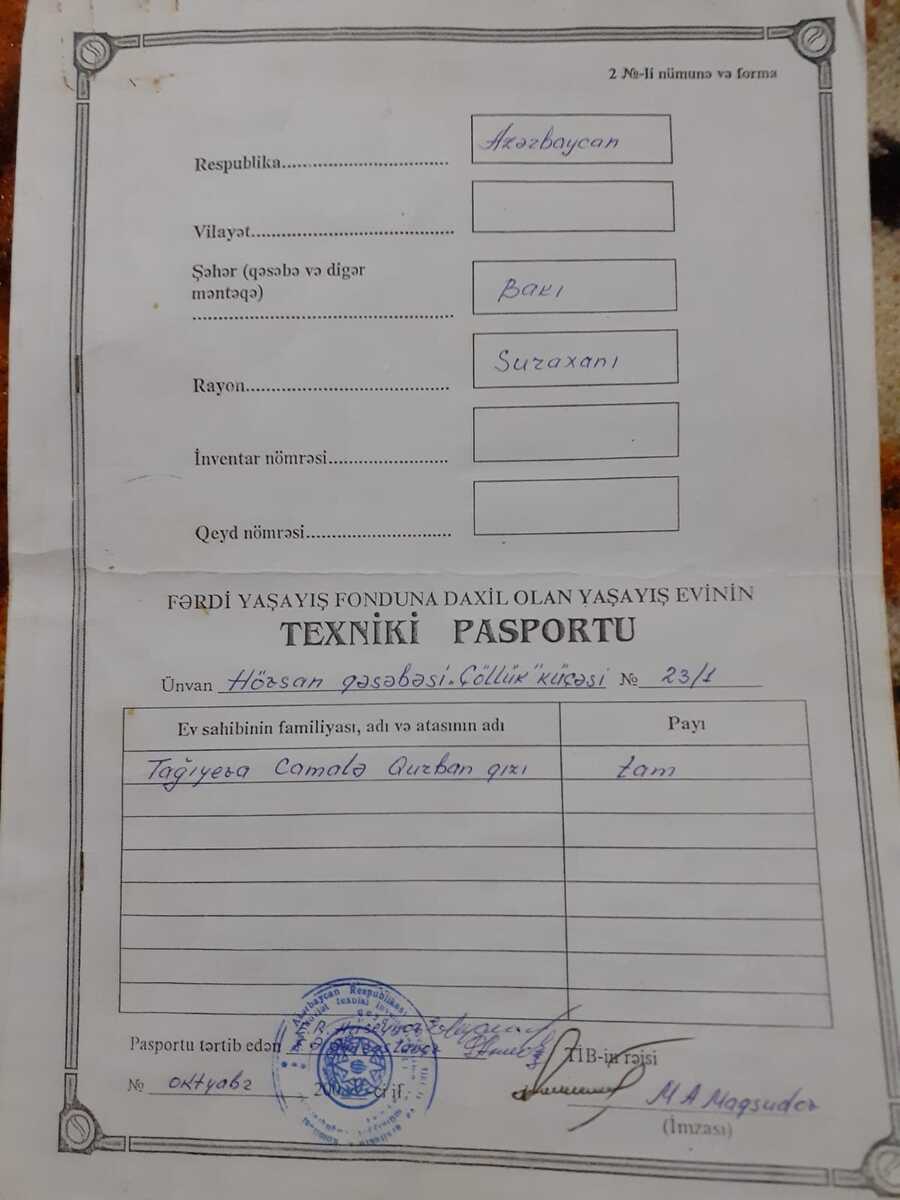 2 №-li nümunə və forma
Respublika............................... Azərbaycan
Vilayət......................................
Şəhər (qəsəbə və digər
məntəqə)
................................................ Bakı
Rayon...................................... Suraxanı
İnventar nömrəsi......................
Qeyd nömrəsi...........................
FƏRDİ YAŞAYIŞ FONDUNA DAXİL OLAN YAŞAYIŞ EVİNİN
TEXNİKİ PASPORTU
Ünvan Hövsan qəsəbəsi "Çöllük" küçəsi № 23/1
Ev sahibinin familiyası, adı və atasının adı Payı
Tağıyeva Camalə Qurban qızı tam
Azərbaycan Respublikası
Pasportu tərtib edən
TİB-in rəisi
№ oktyabr 200 ci il.
M A Maqsudov
(İmzası)